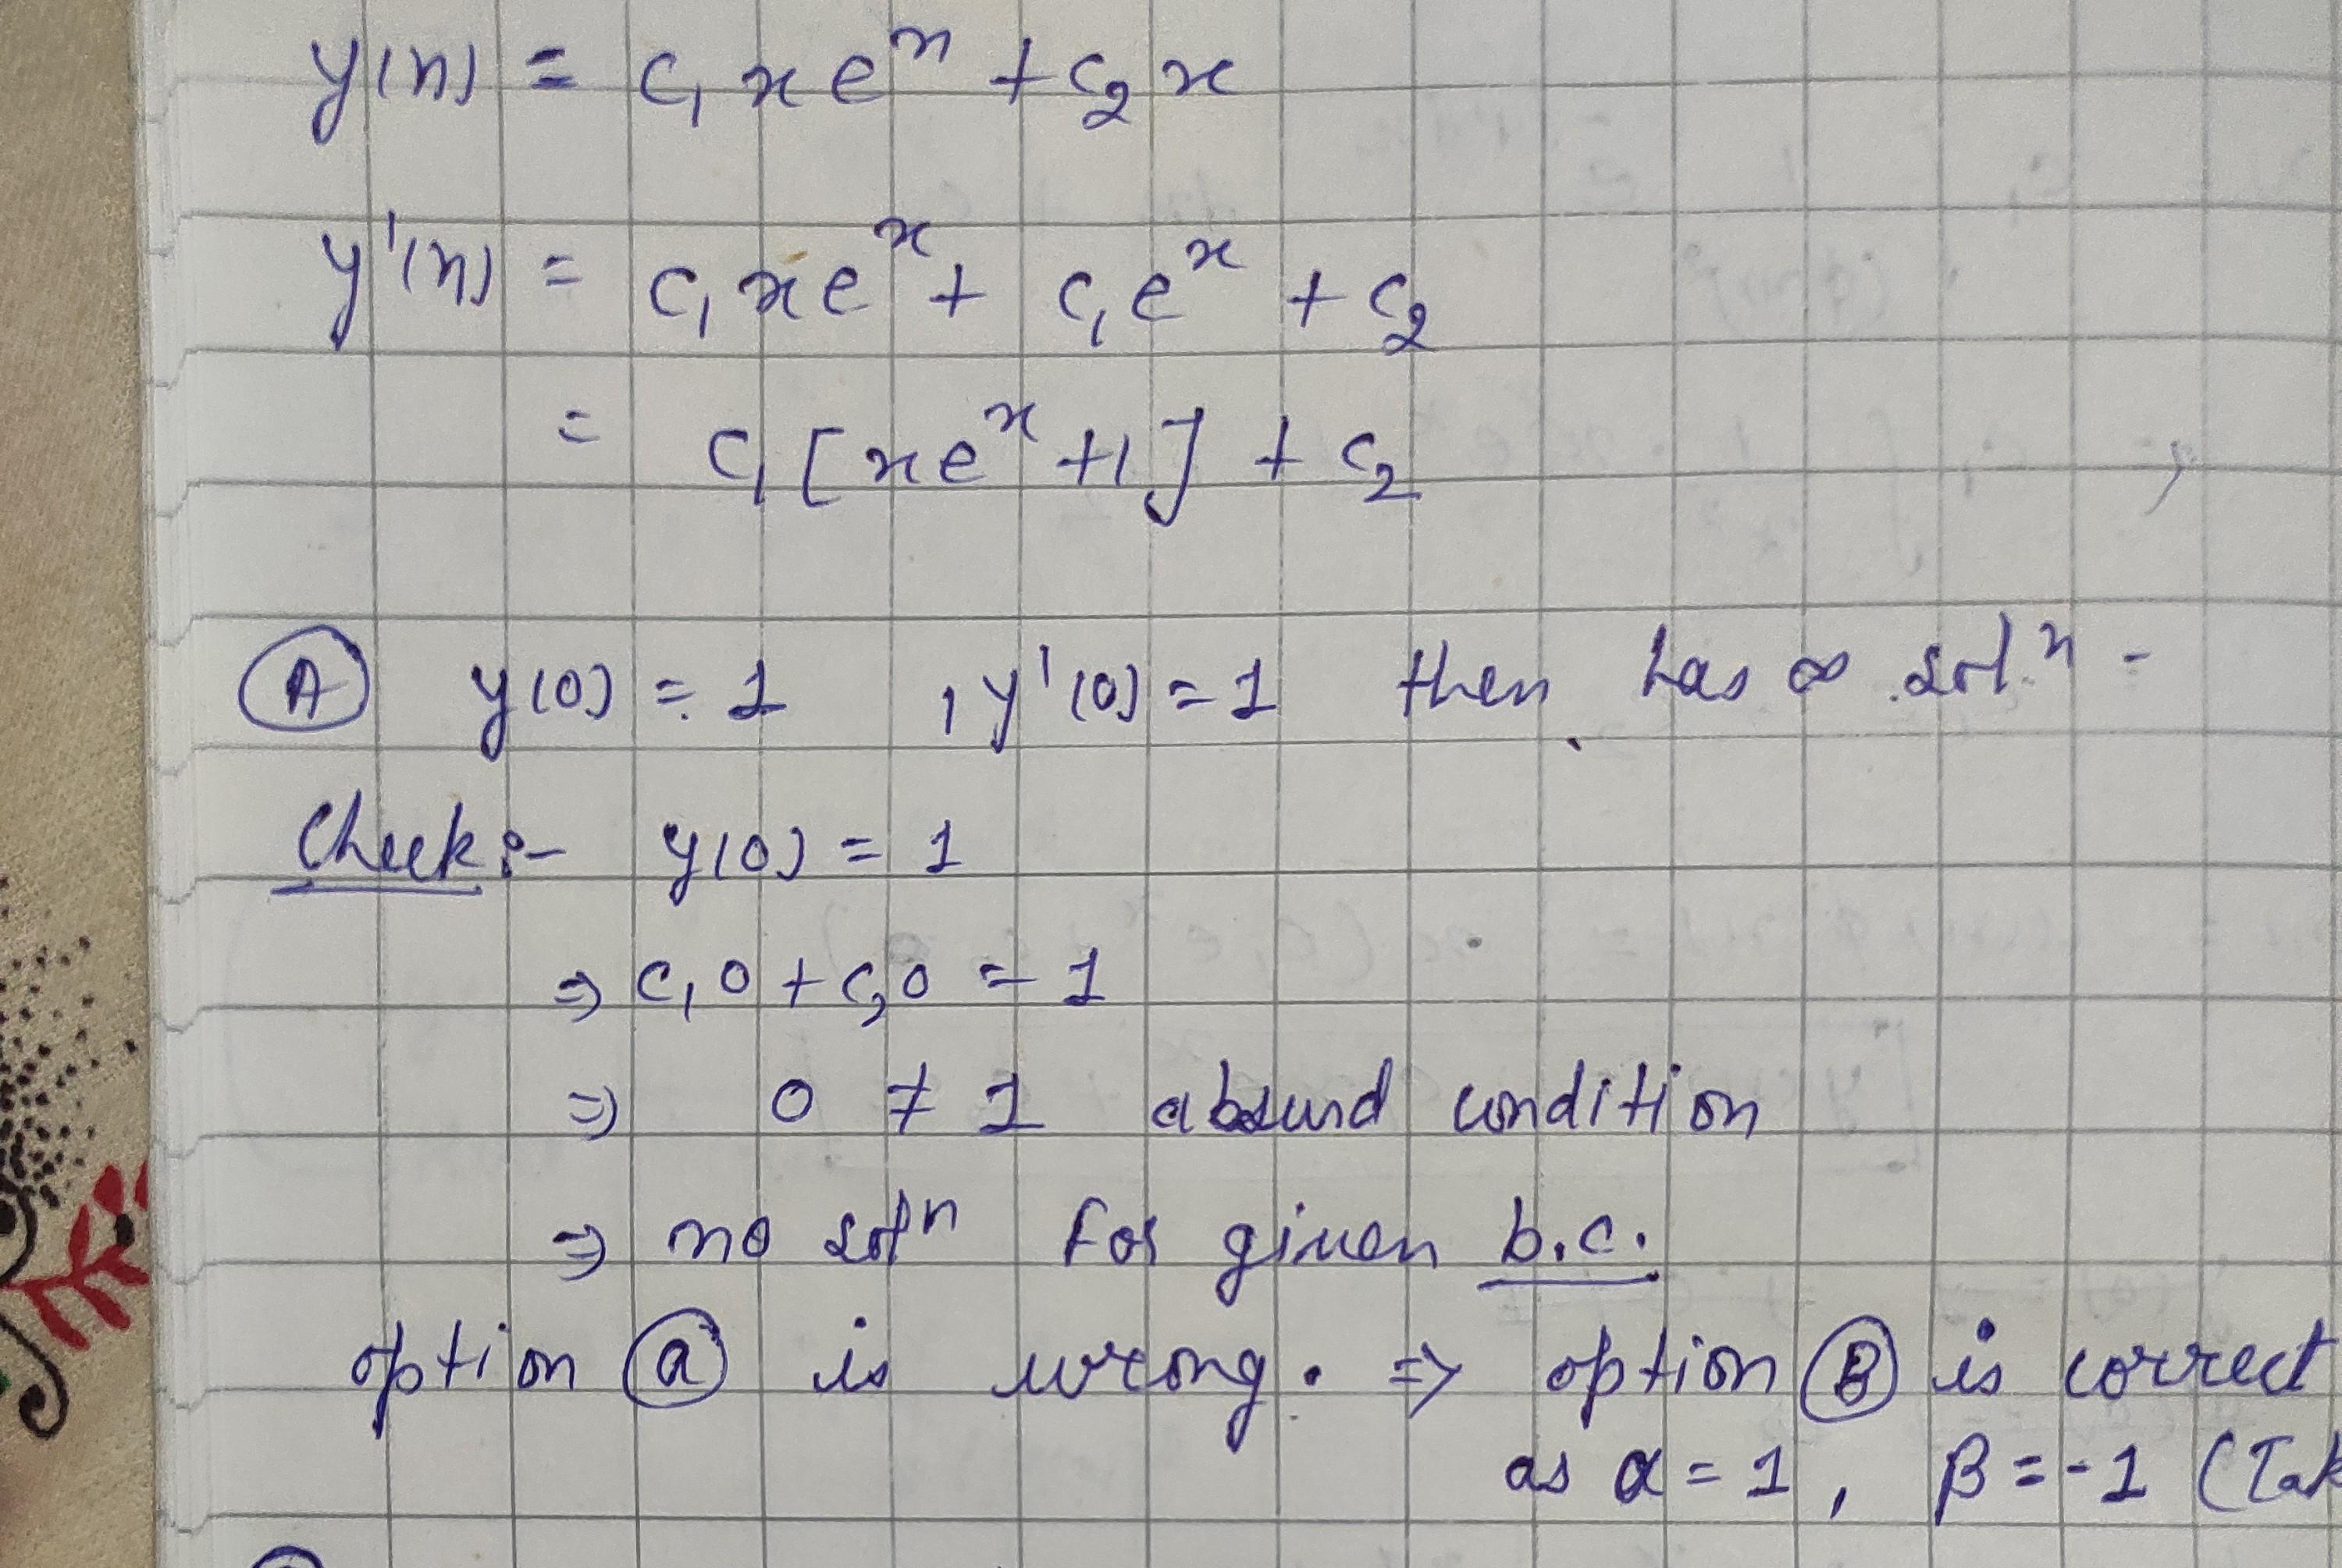 y(x) = c₁ x eˣ + c₂ x
y'(x) = c₁ x eˣ + c₁ eˣ + c₂
= c₁ [x eˣ + 1] + c₂
Ⓐ y(0) = 1 , y'(0) = 1 then has ∞ solⁿ -
Check :- y(0) = 1
⇒ c₁ 0 + c₂ 0 = 1
⇒ 0 ≠ 1 absurd condition
⇒ no solⁿ for given b.c.
option ⓐ is wrong. ⇒ option Ⓑ is correct
as α = 1 , β = -1 (Tak